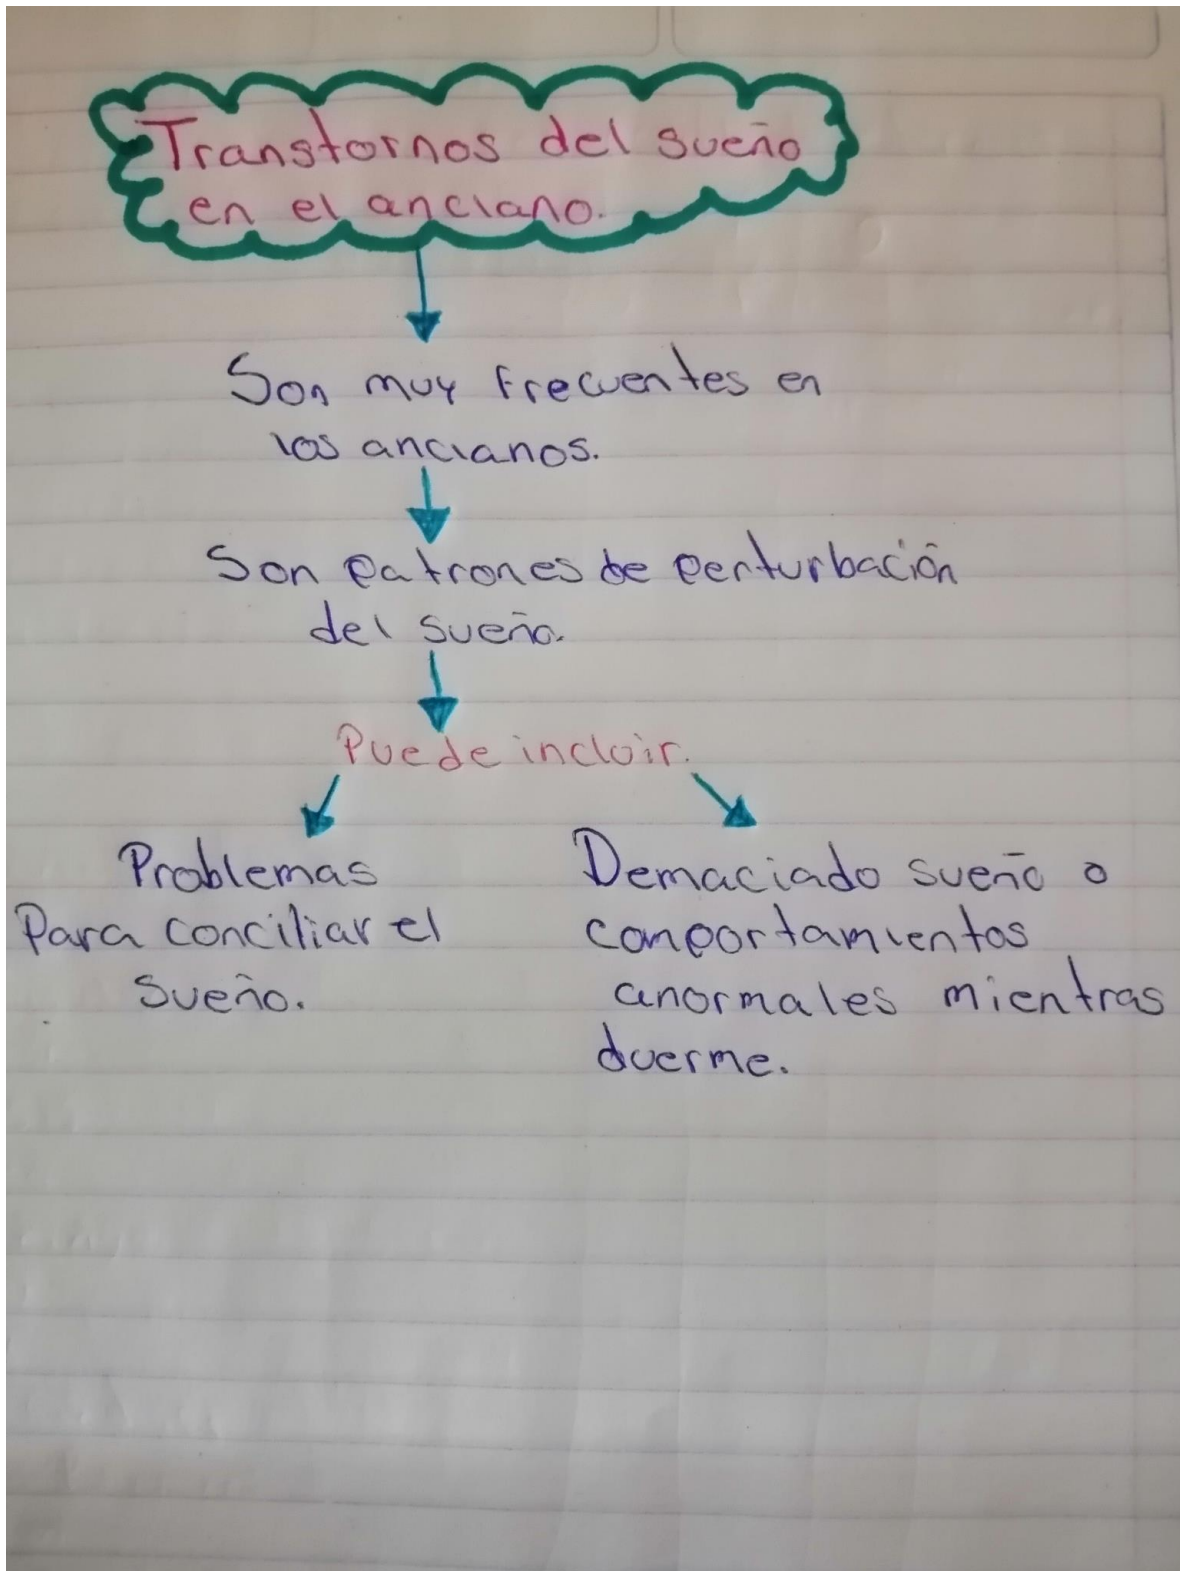 Transtornos del sueño
en el anciano.
Son muy frecuentes en
los ancianos.
Son patrones de perturbación
del sueño.
Puede incluir.
Problemas
Para conciliar el
sueño.
Demaciado sueño o
comportamientos
anormales mientras
duerme.